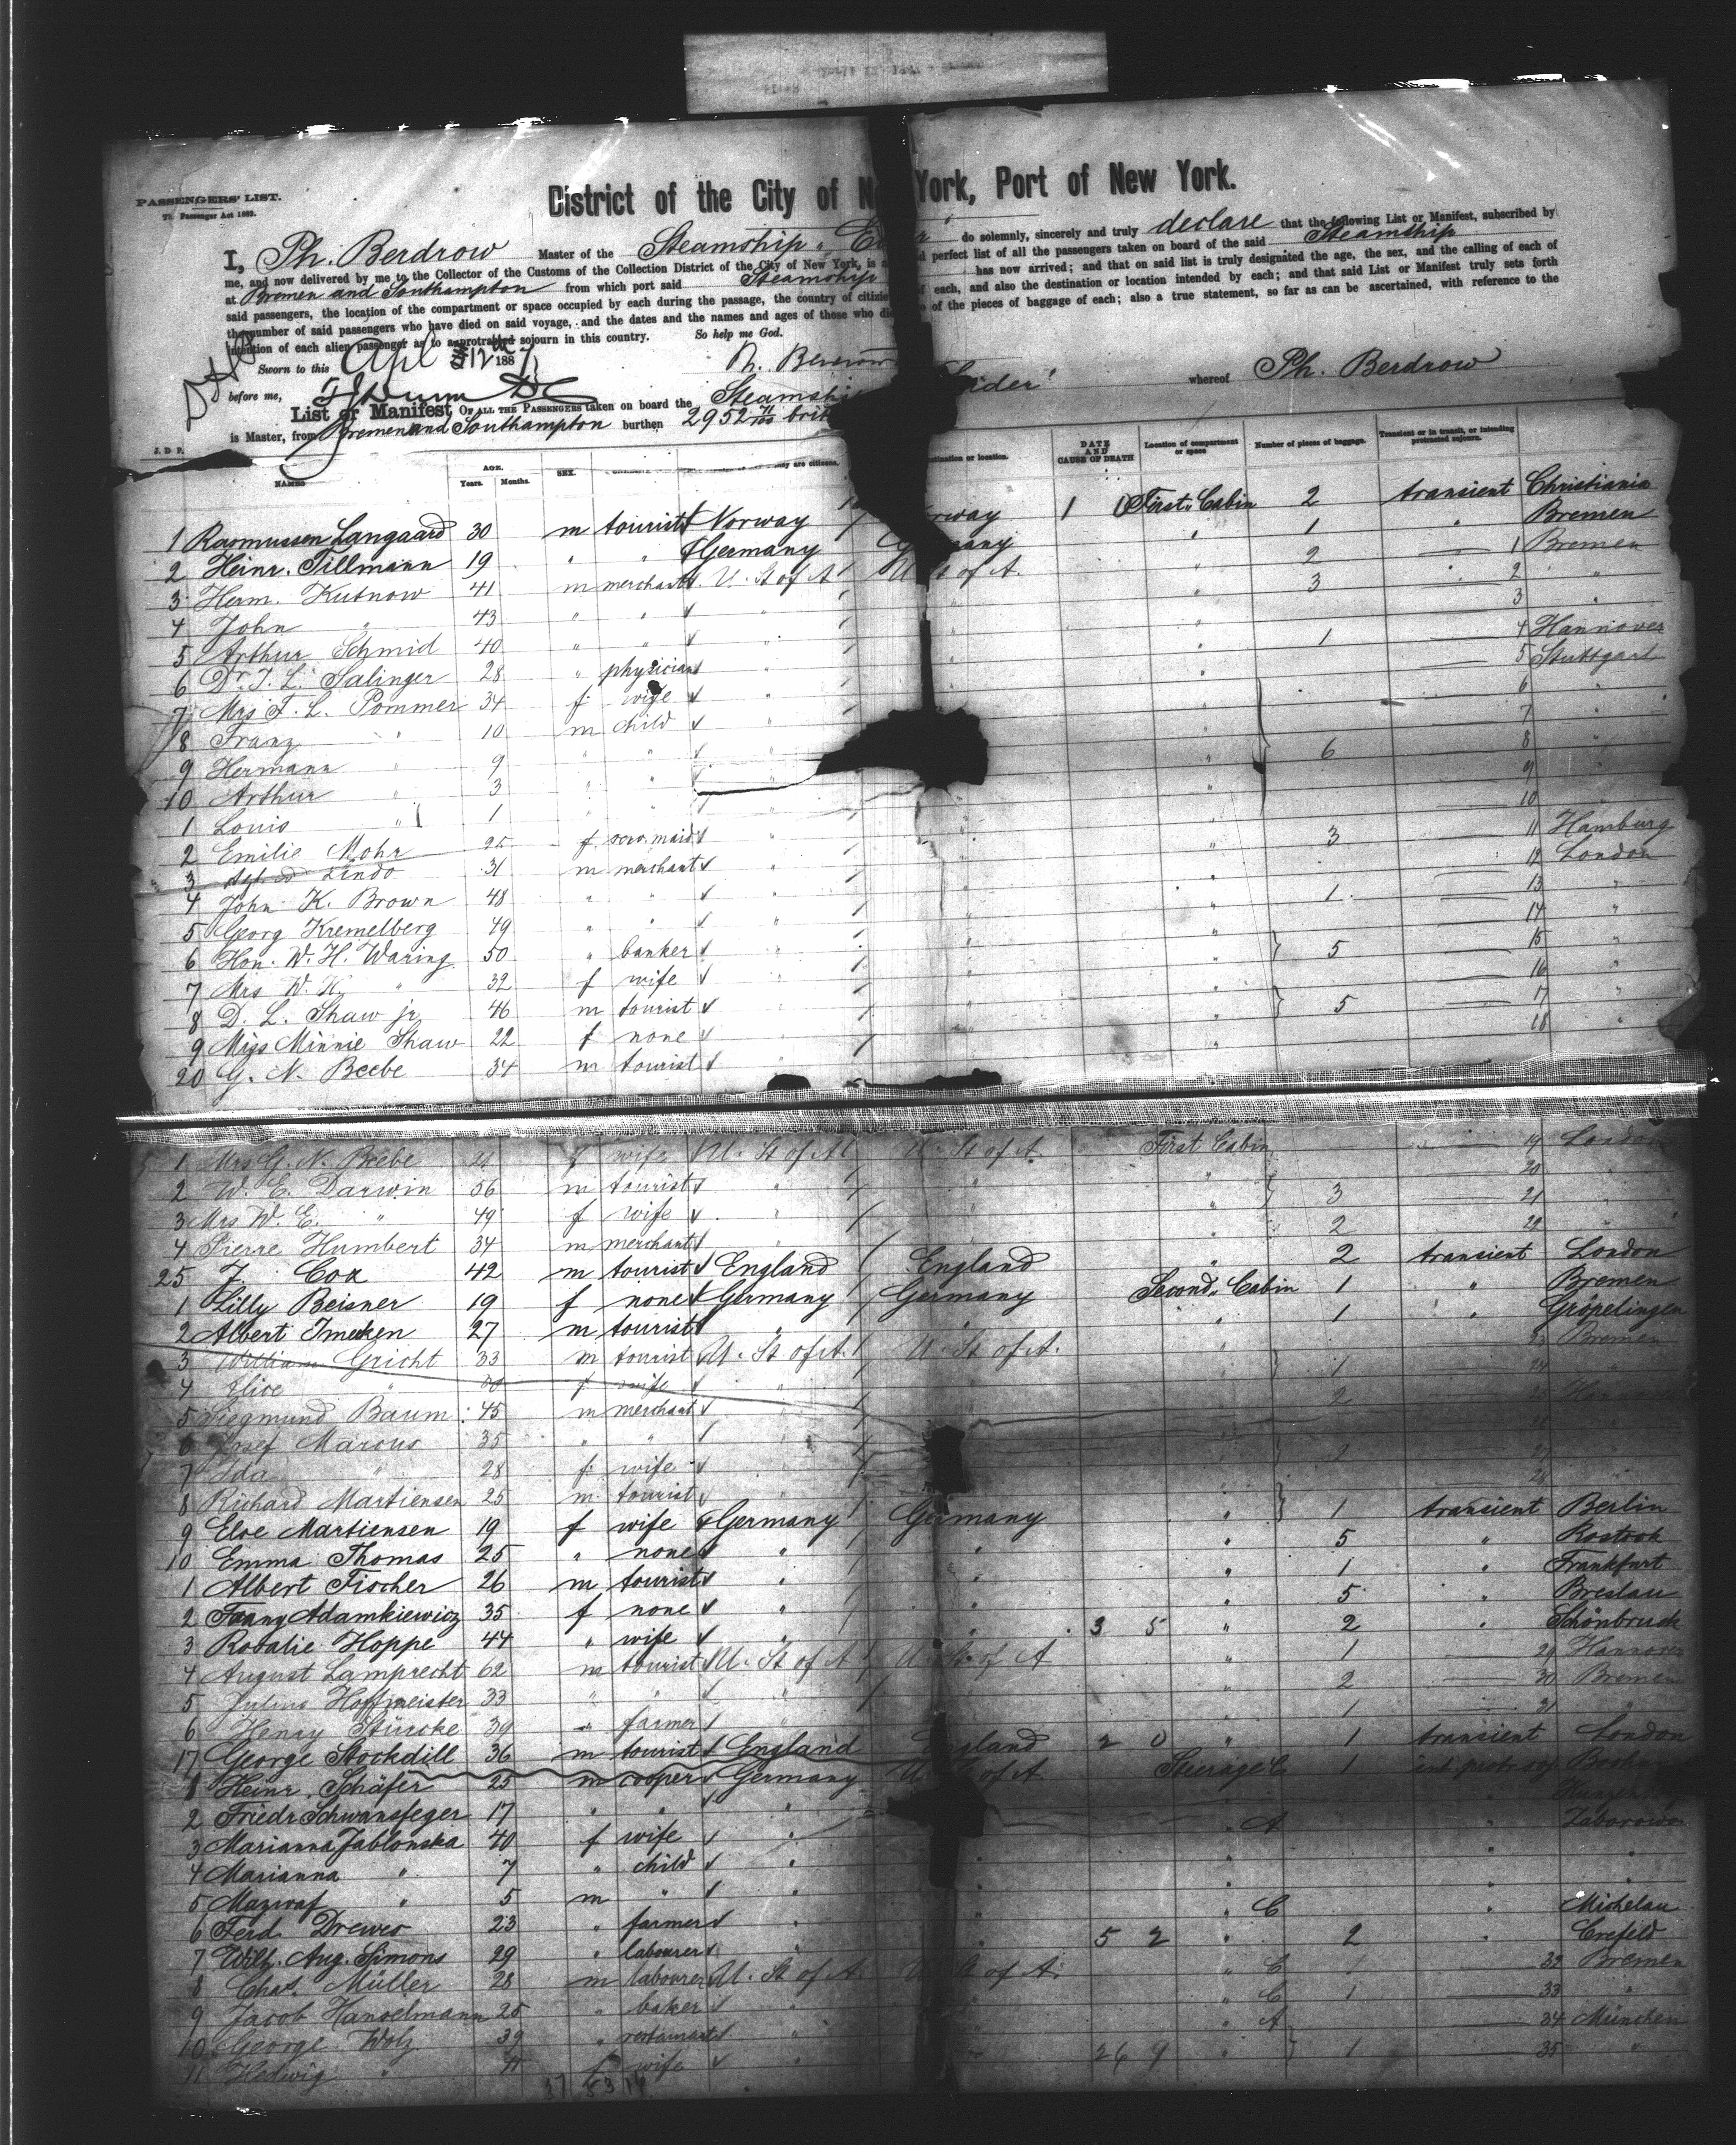 PASSENGERS' LIST.
Passenger Act 1882.
District of the City of New York, Port of New York.
I, Ph. Berdrow Master of the Steamship " do solemnly, sincerely and truly declare that the following List or Manifest, subscribed by
me, and now delivered by me to the Collector of the Customs of the Collection District of the City of New York, is a perfect list of all the passengers taken on board of the said Steamship
at Bremen and Southampton from which port said Steamship has now arrived; and that on said list is truly designated the age, the sex, and the calling of each of
said passengers, the location of the compartment or space occupied by each during the passage, the country of each, and also the destination or location intended by each; and that said List or Manifest truly sets forth
the number of said passengers who have died on said voyage, and the dates and the names and ages of those who of the pieces of baggage of each; also a true statement, so far as can be ascertained, with reference to the
intention of each alien passenger as to a protracted sojourn in this country. So help me God.
Sworn to this 12th 188 Ph. Berdrow
before me,
List or Manifest OF ALL THE PASSENGERS taken on board the Steamship Eider" whereof Ph. Berdrow
is Master, from Bremen and Southampton burthen 2952
J. D. P.
NAMES AGE. Years. Months. SEX. they are citizens. Destination or location. DATE AND CAUSE OF DEATH Location of compartment or space Number of pieces of baggage. Transient or in transit, or intending protracted sojourn.
1 Rasmussen Langaard 30 m tourist Norway Norway First Cabin 2 transient Christiania
2 Heinr. Tillmann 19 " " Germany Germany " 1 " Bremen
3 Herm. Kutnow 41 m merchant U. St of A U. St of A. " 2 1 Bremen
4 John " 43 " " " " " 3 2 "
5 Arthur Schmid 40 " " " " " 3 "
6 Dr. J. L. Salinger 28 " physician " " " 1 4 Hannover
7 Mrs F. L. Pommer 34 f wife " " " 5 Stuttgart
8 Franz " 10 m child " " 6 "
9 Hermann " 9 " " " " 7
10 Arthur " 3 " " " " 6 8 "
1 Louis " 1 " " " 9 "
2 Emilie Mohr 25 f serv. maid " " 10
3 Lindo 31 m merchant " " " 3 11 Hamburg
4 John K. Brown 48 " " " " " 12 London
5 Georg Kremelberg 49 " " " " " 1 13 "
6 Hon. W. H. Waring 50 " banker " " " 14 "
7 Mrs W. H. " 32 f wife " " " 5 15 "
8 D. L. Shaw jr 46 m tourist " " " 16 "
9 Miss Minnie Shaw 22 f none " " " 5 17 "
20 G. N. Beebe 34 m tourist " " " 18 "
1 Mrs G. N. Beebe f wife U. St of A U. St of A. First Cabin 19 London
2 W. E. Darwin 56 m tourist " " " 20
3 Mrs W. E. " 49 f wife " " " 3 21 "
4 Pierre Humbert 34 m merchant " " " 2 22 "
25 J. Cox 42 m tourist England England " 2 transient London
1 Lilly Beisner 19 f none Germany Germany Second Cabin 1 " Bremen
2 Albert Imeken 27 m tourist " " " 1 " Gröpelingen
3 William Gricht 33 m tourist U. St of A. U. St of A. 23 Bremen
4 Elise " 30 f wife " " 1 24
5 Siegmund Baum 45 m merchant " 2
6 Josef Marcus 35 " " " 26
7 Ida " 28 f wife " 2 27
8 Richard Martiensen 25 m tourist " 28
9 Else Martiensen 19 f wife Germany Germany " 1 transient Berlin
10 Emma Thomas 25 " none " " " 5 " Rostock
1 Albert Fischer 26 m tourist " " " 1 " Frankfurt
2 Fanny Adamkiewicz 35 f none " " " 5 " Breslau
3 Rosalie Hoppe 44 " wife " " 3 5 " 2 " Schönbruch
4 August Lamprecht 62 m tourist U. St of A U. St of A " 1 29 Hannover
5 Julius Hoffmeister 33 " " " " 2 30 Bremen
6 Henry Stürcke 39 " farmer " 1 31 "
17 George Stockdill 36 m tourist England England 2 0 " 1 transient London
1 Heinr. Schäfer 25 m cooper Germany U. St of A Steerage C 1 int. protr. soj.
2 Friedr Schwansfeger 17 " " " "
3 Marianna Jablonska 40 f wife " " A " Zaborowo
4 Marianna " 7 " child " " " " "
5 " 5 m " " " " " "
6 Ferd. Drewes 23 " farmer " " " C " Michelau
7 Wilh. Aug. Simons 29 " labourer " " 5 2 " 2 " Crefeld
8 Chas. Müller 28 m labourer U. St of A. U. St of A. " C 1 32 Bremen
9 Jacob Hanselmann 25 " baker " " C 1 33 "
10 George Wolz 39 " " A 34 München
11 Hedwig " f wife " 26 9 " 1 35 "